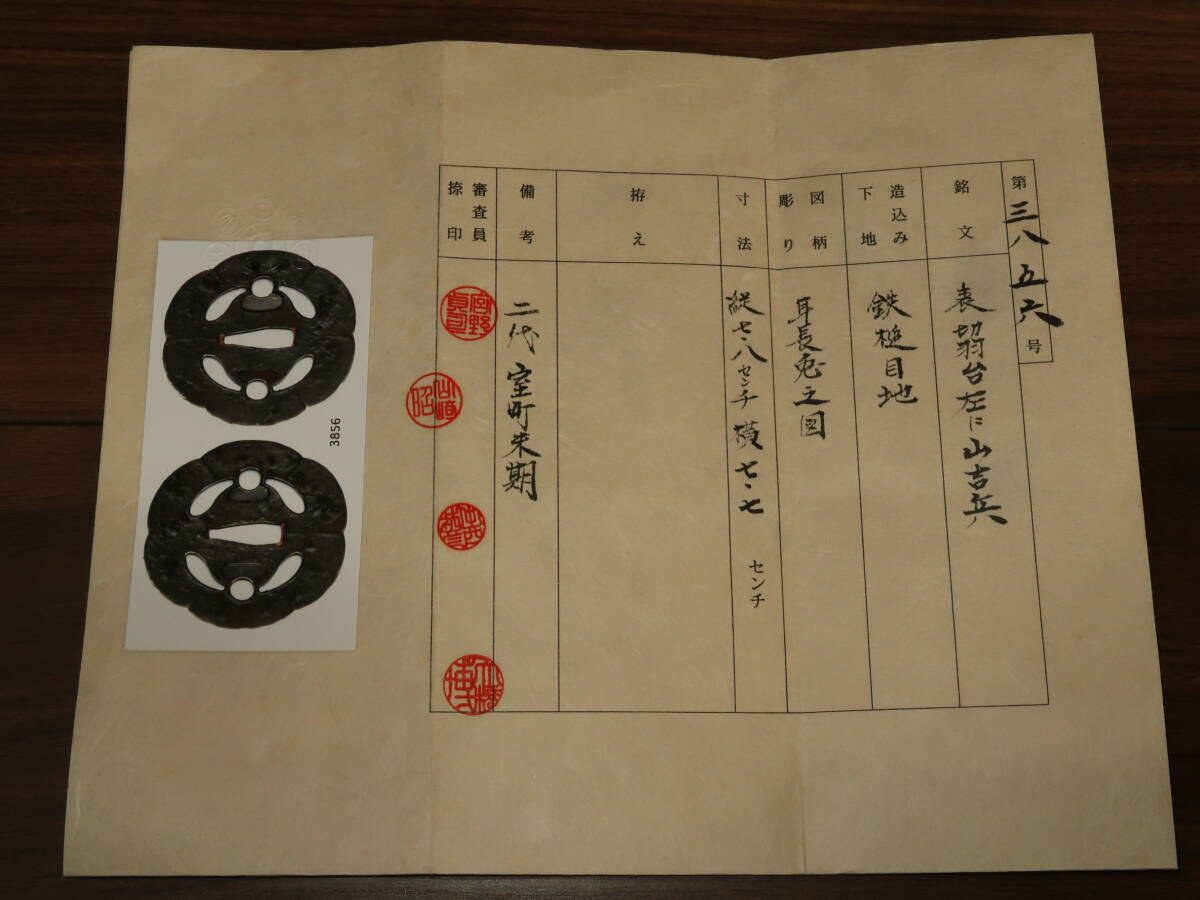 第三八五六号
銘文
表切羽台左に山吉兵
造込み
下地
鉄槌目地
図柄
彫り
耳長兎之図
寸法
縦七、八センチ 横七、七 センチ
拵え
備考
二代 室町末期
審査員
捺印
3856